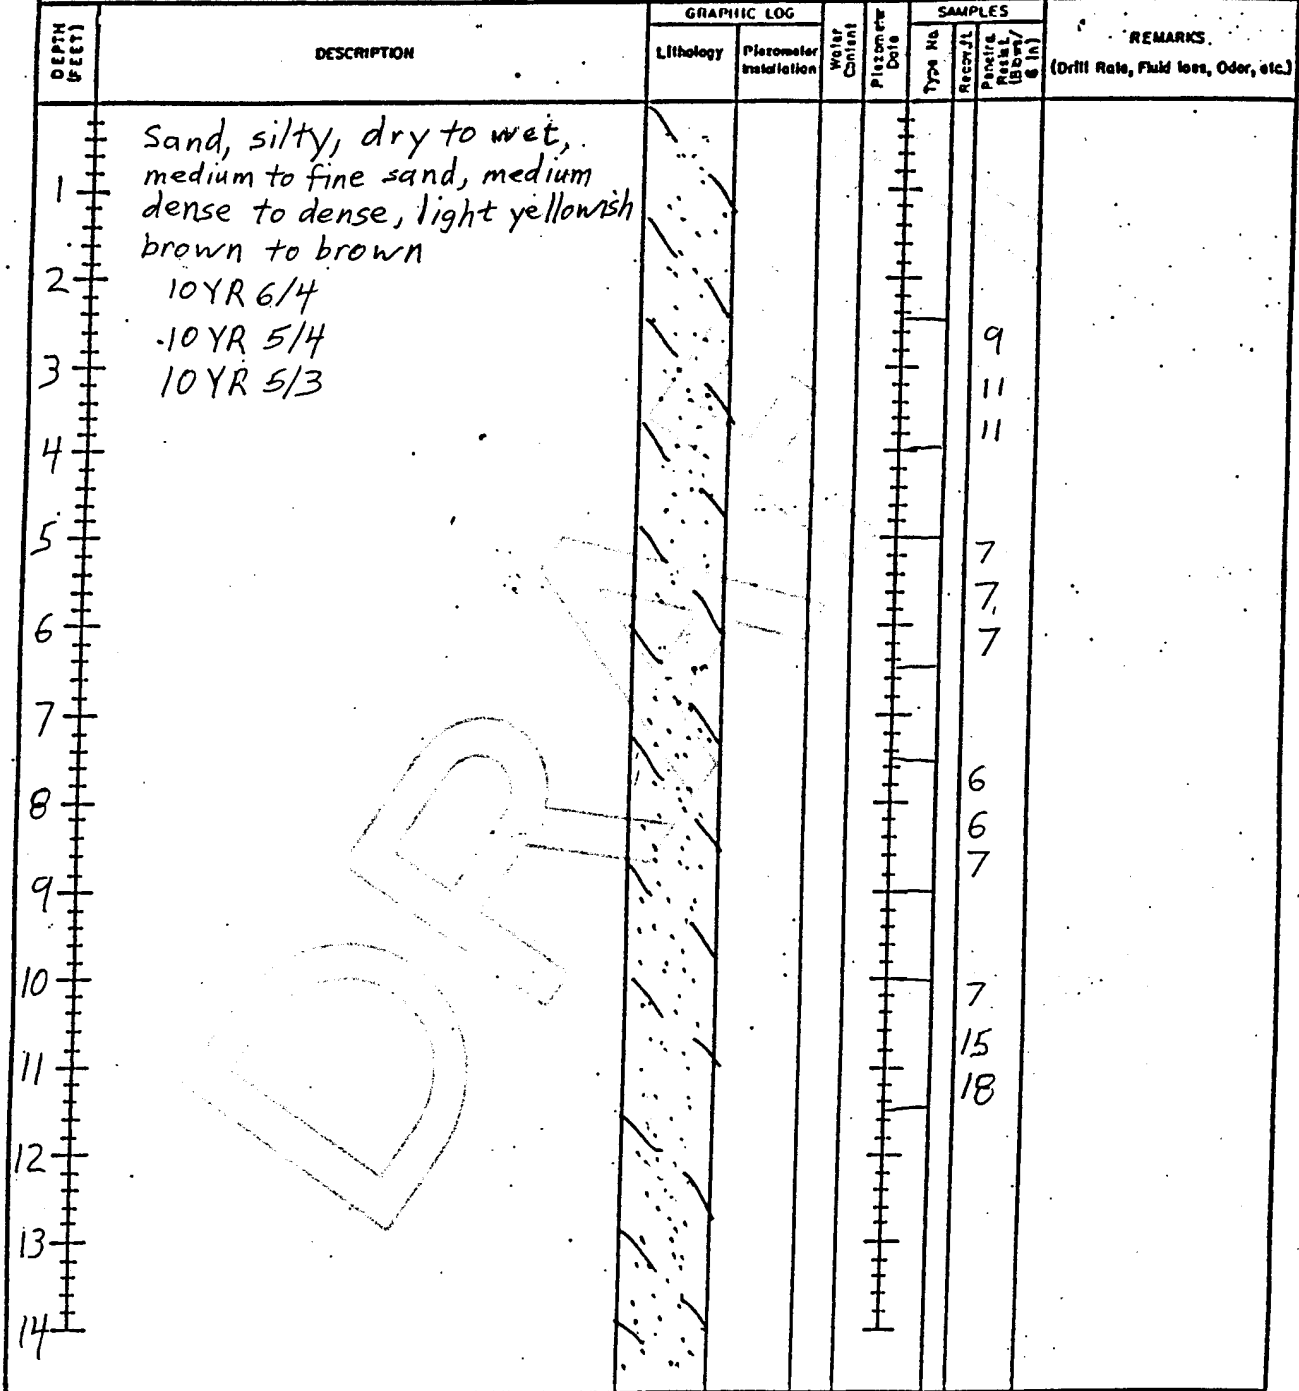 DEPTH (FEET)
DESCRIPTION
GRAPHIC LOG
Lithology
Piezometer Installation
Water Content
Piezometer Date
SAMPLES
Type No.
Recov. ft.
Penetra. Resist. (Blows/ 6 in)
REMARKS
(Drill Rate, Fluid loss, Odor, etc.)
Sand, silty, dry to wet,
medium to fine sand, medium
dense to dense, light yellowish
brown to brown
10 YR 6/4
10 YR 5/4
10 YR 5/3
1
2
3
4
5
6
7
8
9
10
11
12
13
14
9
11
11
7
7
7
6
6
7
7
15
18
DRAFT